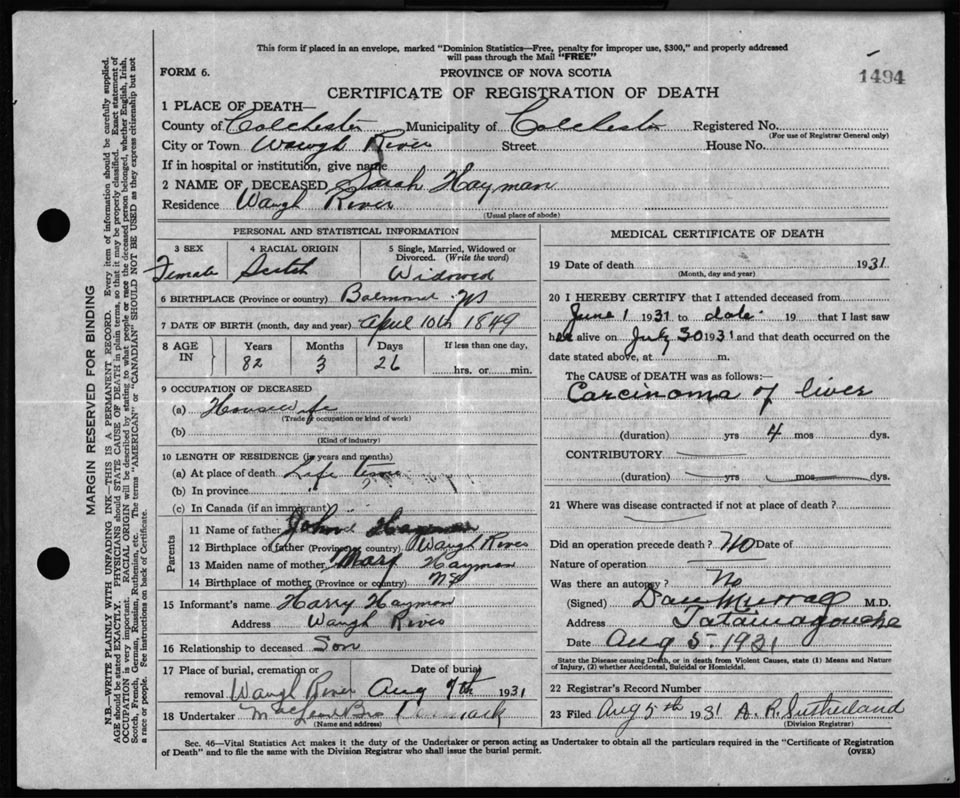 This form if placed in an envelope, marked "Dominion Statistics—Free, penalty for improper use, $300," and properly addressed
will pass through the Mail "FREE"
FORM 6.
PROVINCE OF NOVA SCOTIA
1494
CERTIFICATE OF REGISTRATION OF DEATH
1 PLACE OF DEATH—
County of Colchester Municipality of Colchester Registered No.
(For use of Registrar General only)
City or Town Waugh River Street House No.
If in hospital or institution, give name
2 NAME OF DECEASED Sarah Hayman
Residence Waugh River
(Usual place of abode)
PERSONAL AND STATISTICAL INFORMATION
3 SEX 4 RACIAL ORIGIN 5 Single, Married, Widowed or Divorced. (Write the word)
Female Scotch Widowed
6 BIRTHPLACE (Province or country) NS
7 DATE OF BIRTH (month, day and year) April 10th 1849
8 AGE IN Years Months Days If less than one day,
82 3 26 hrs. or min.
9 OCCUPATION OF DECEASED
(a) Housewife
(Trade, occupation or kind of work)
(b)
(Kind of industry)
10 LENGTH OF RESIDENCE (in years and months)
(a) At place of death Life time
(b) In province
(c) In Canada (if an immigrant)
Parents
11 Name of father John Hayman
12 Birthplace of father (Province or country) Waugh River
13 Maiden name of mother Mary Hayman
14 Birthplace of mother (Province or country) NS
15 Informant's name Harry Hayman
Address Waugh River
16 Relationship to deceased Son
17 Place of burial, cremation or removal Waugh River
Date of burial Aug 7th 1931
18 Undertaker
(Name and address)
MEDICAL CERTIFICATE OF DEATH
19 Date of death 1931
(Month, day and year)
20 I HEREBY CERTIFY that I attended deceased from
June 1 1931 to date 19 that I last saw
her alive on July 30 1931 and that death occurred on the
date stated above, at m.
The CAUSE of DEATH was as follows:—
Carcinoma of liver
(duration) yrs 4 mos dys.
CONTRIBUTORY
(duration) yrs mos dys.
21 Where was disease contracted if not at place of death?
Did an operation precede death? No Date of
Nature of operation
Was there an autopsy? No
(Signed) Dan Murray M.D.
Address Tatamagouche
Date Aug 5. 1931
State the Disease causing Death, or in death from Violent Causes, state (1) Means and Nature
of Injury, (2) whether Accidental, Suicidal or Homicidal.
22 Registrar's Record Number
23 Filed Aug 5th 1931 A. R. Sutherland
(Division Registrar)
Sec. 46—Vital Statistics Act makes it the duty of the Undertaker or person acting as Undertaker to obtain all the particulars required in the "Certificate of Registration
of Death" and to file the same with the Division Registrar who shall issue the burial permit. (OVER)
MARGIN RESERVED FOR BINDING
N.B.—WRITE PLAINLY WITH UNFADING INK—THIS IS A PERMANENT RECORD. Every item of information should be carefully supplied.
AGE should be stated EXACTLY. PHYSICIANS should STATE CAUSE OF DEATH in plain terms, so that it may be properly classified. Exact statement of
OCCUPATION is very important. RACIAL ORIGIN will be described by stating to what people or race the deceased person belonged, whether English, Irish,
Scotch, French, German, Russian, Ruthenian, etc. The terms "AMERICAN" or "CANADIAN" SHOULD NOT BE USED as they express citizenship but not
a race or people. See instructions on back of Certificate.